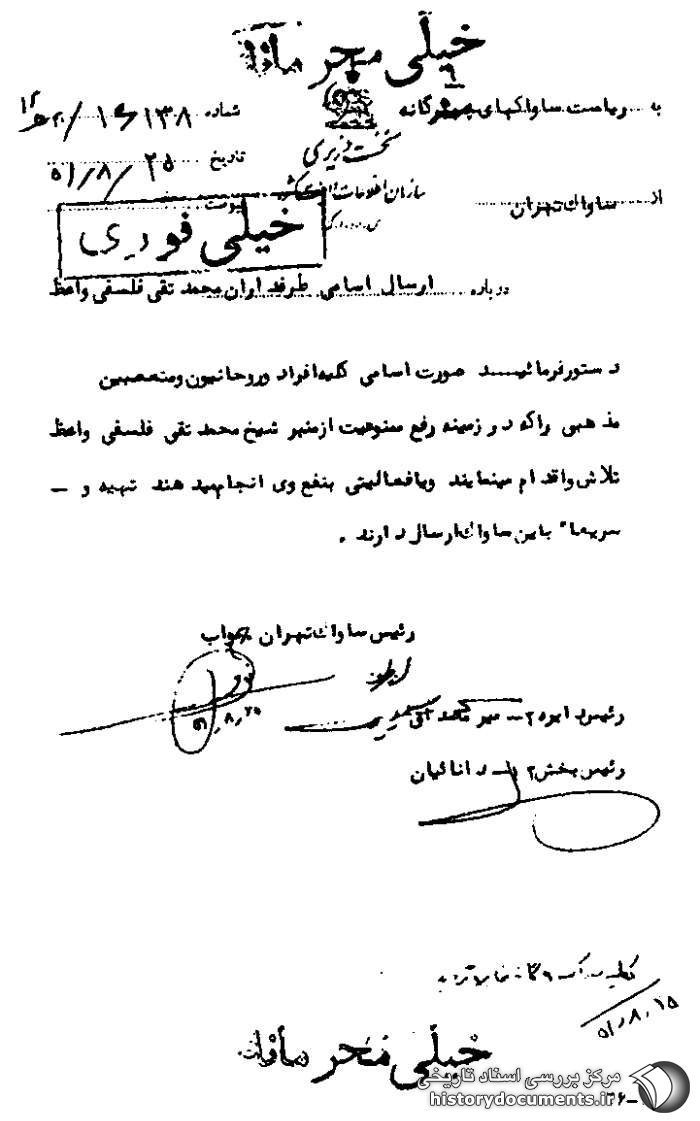 خیلی محرمانه
به ریاست ساواکهای ۹ گانه
نخست وزیری
سازمان اطلاعات و امنیت کشور
شماره ۱۳۸
تاریخ ۵۱/۸/۲۵
پیوست
از ساواک تهران
خیلی فوری
درباره ارسال اسامی طرفداران محمد تقی فلسفی واعظ
دستور فرمائیـــد صورت اسامی کلیه افراد و روحانیون و متعصبین
مذهبی را که در زمینه رفع ممنوعیت از منبر شیخ محمد تقی فلسفی واعظ
تلاش و اقدام مینمایند ویا فعالیتی بنفع وی انجام میدهند تهیه و –
سریعاً باین ساواک ارسال دارند .
رئیس ساواک تهران نواب
۵۱/۸/۲۵
رئیس دایره ۲ –
رئیس بخش ۲ – دانائیان
۵۱/۸/۱۵
خیلی محرمانه
مرکز بررسی اسناد تاریخی
historydocuments.ir
–۳۶